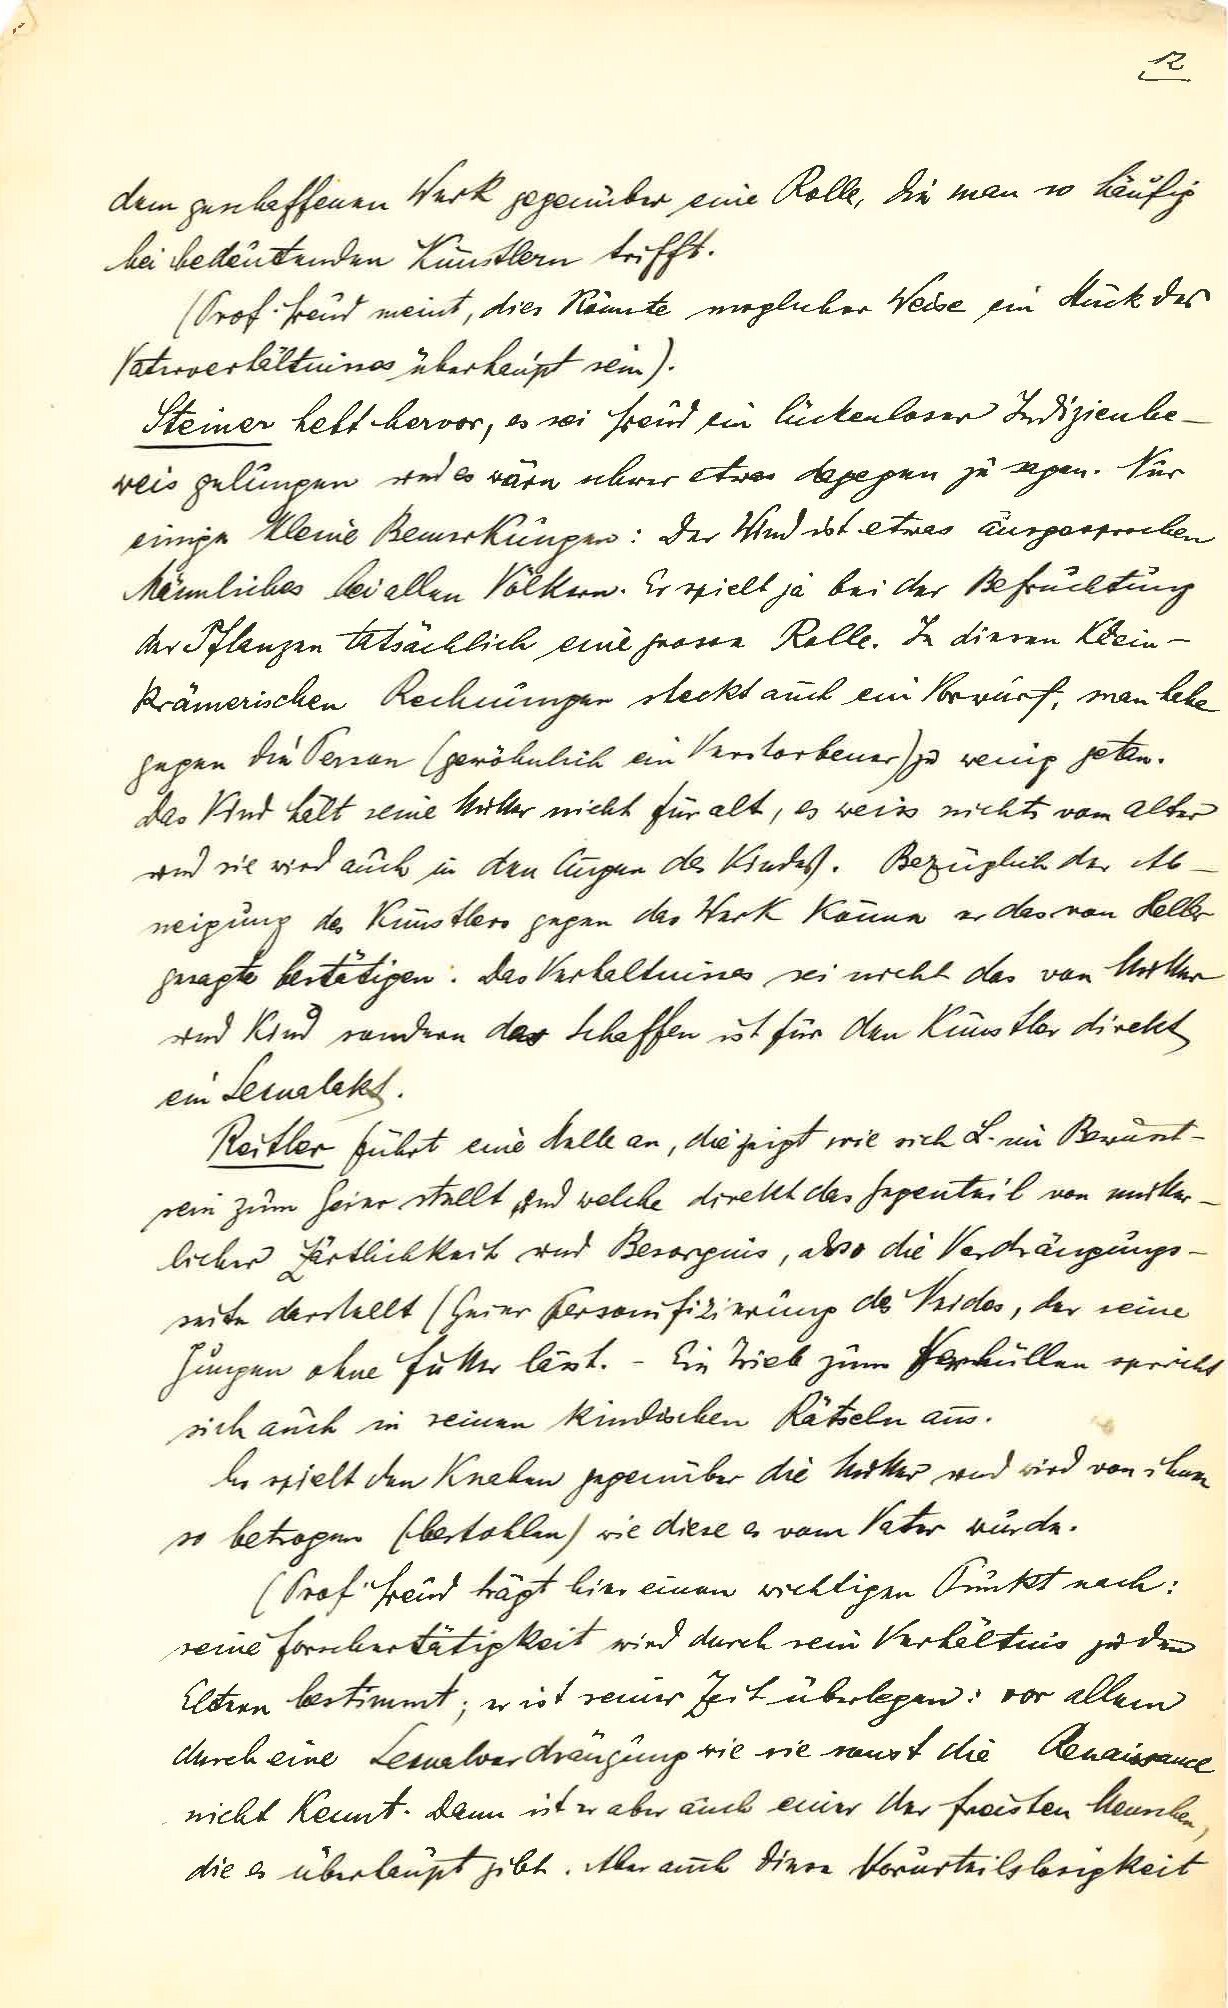 12
dem geschaffenen Werk gegenüber eine Rolle, die man so häufig
bei bedeutenden Künstlern trifft.
(Prof. Freud meint, dies könnte möglicher Weise ein Stück des
Vaterverhältnisses überhaupt sein).
Steiner hebt hervor, es sei Freud ein lückenloser Indizienbe-
weis gelungen und es wäre schwer etwas dagegen zu sagen. Nur
einige kleine Bemerkungen: Der Wind ist etwas ausgesprochen
Männliches bei allen Völkern. Er spielt ja bei der Befruchtung
der Pflanzen tatsächlich eine grosse Rolle. In diesen klein-
krämerischen Rechnungen steckt auch ein Vorwurf, man habe
gegen die Person (gewöhnlich ein Verstorbener) zu wenig getan.
Das Kind hält seine Mutter nicht für alt, es weiss nichts vom Alter
und sie wird auch in den Augen des Kindes. Bezüglich der Ab-
neigung des Künstlers gegen das Werk könne er das von Heller
gesagte bestätigen. Das Verhältnisses sei nicht das von Mutter
und Kind sondern das Schaffen ist für den Künstler direkt
ein Sexualakt.
Reitler führt eine Stelle an, die zeigt wie sich L. im Bewusst-
sein zum Geier stellt und welche direkt das Gegenteil von mütter-
licher Zärtlichkeit und Besorgnis, also die Verdrängungs-
seite darstellt (Geier Personifizierung des Neides, der seine
Jungen ohne Futter lässt. - Ein Trieb zum Verhüllen spricht
sich auch in seinen kindischen Rätseln aus.
Er spielt den Knaben gegenüber die Mutter und wird von ihnen
so betrogen (bestohlen) wie diese es vom Vater wurde.
(Prof. Freud trägt hier einen wichtigen Punkt nach:
seine Forschertätigkeit wird durch sein Verhältnis zu den
Eltern bestimmt; er ist seiner Zeit überlegen: vor allem
durch eine Sexualverdrängung wie sie sonst die Renaissance
nicht kennt. Dann ist er aber auch einer der freisten Menschen,
die es überhaupt gibt. Aber auch diese Vorurteilslosigkeit